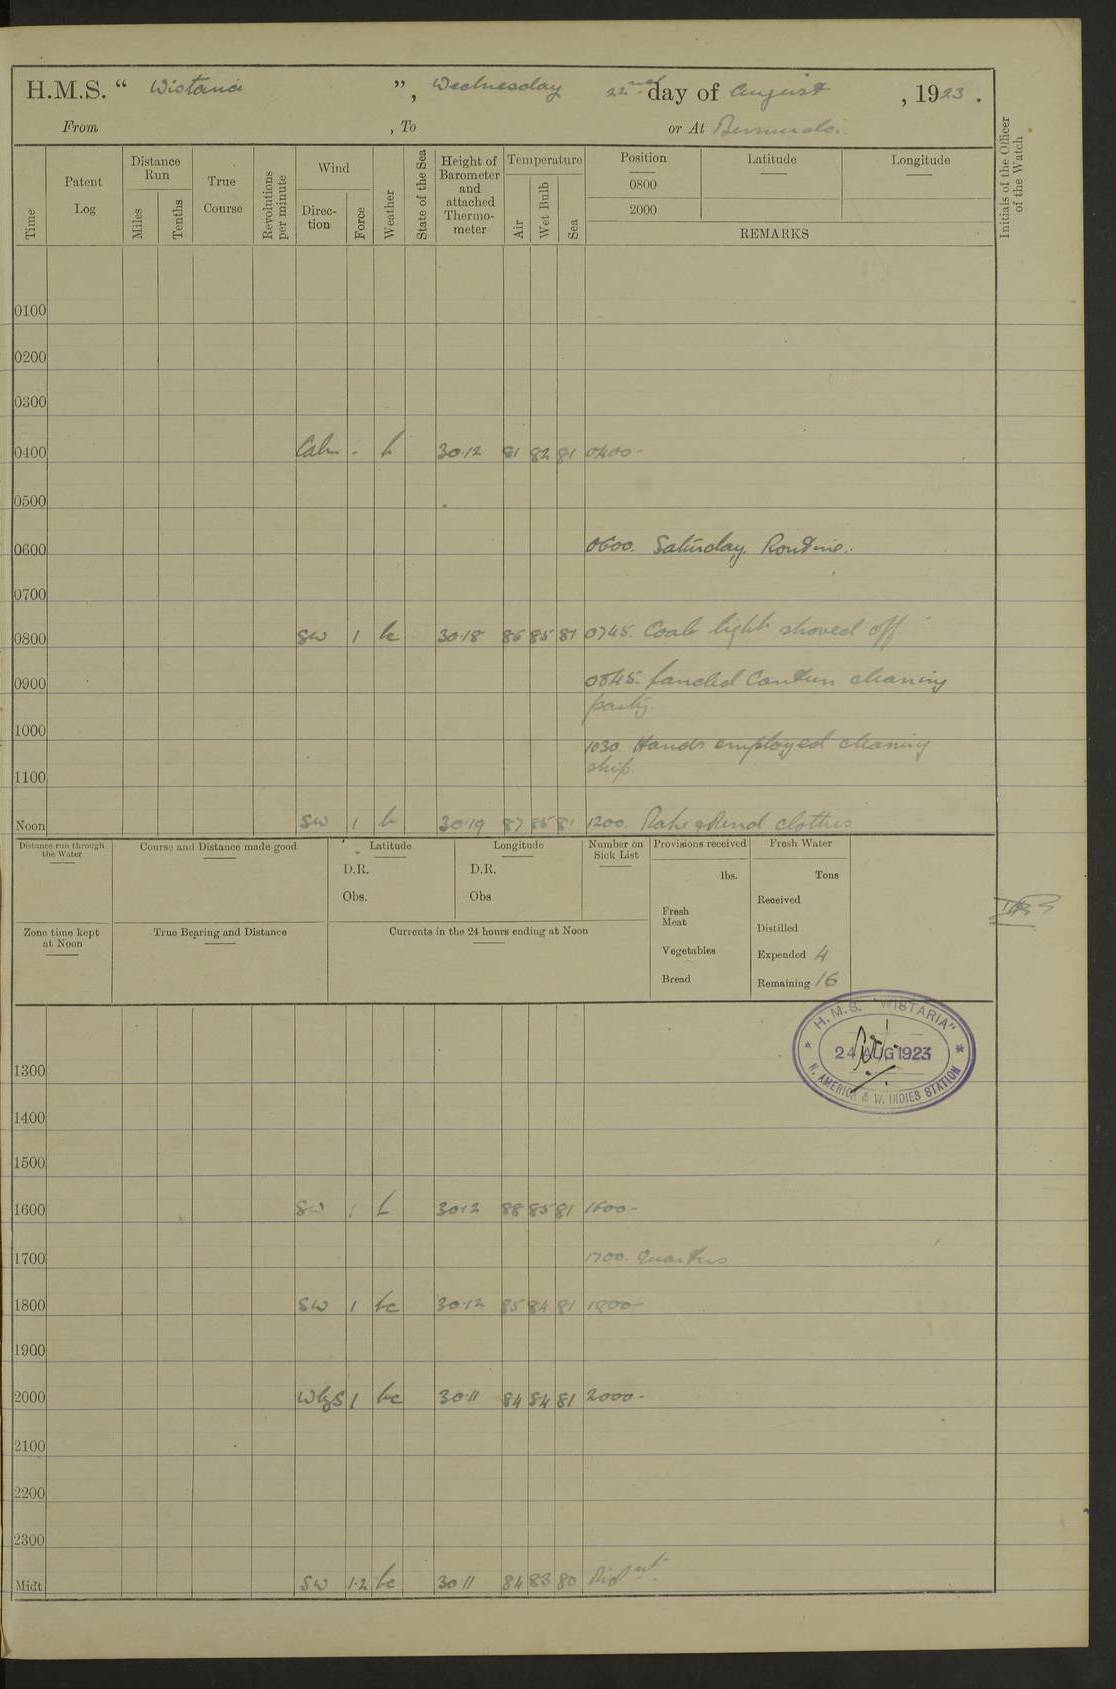 H.M.S. “ Wistaria ”, Wednesday 22nd day of August, 1923.
From , To or At Bermuda.
Initials of the Officer of the Watch
Time
Patent Log
Distance Run
Miles
Tenths
True Course
Revolutions per minute
Wind
Direc-tion
Force
Weather
State of the Sea
Height of Barometer and attached Thermo-meter
Temperature
Air
Wet Bulb
Sea
Position Latitude Longitude
0800
2000
REMARKS
0100
0200
0300
0400 Calm - b 30.12 81 82 81 0400-
0500
0600 0600. Saturday Routine.
0700
0800 SW 1 bc 30.18 86 85 81 0745. Coal light shoved off
0900 0845. Landed Canteen cleaning
party.
1000 1030. Hands employed cleaning
ship.
1100
Noon SW 1 b 30.19 87 85 81 1200. Make & Mend clothes
Distance run through the Water
Course and Distance made good
Latitude
D.R.
Obs.
Longitude
D.R.
Obs
Number on Sick List
Provisions received
lbs.
Fresh Meat
Vegetables
Bread
Fresh Water
Tons
Received
Distilled
Expended 4
Remaining 16
Zone time kept at Noon
True Bearing and Distance
Currents in the 24 hours ending at Noon
H.M.S. "WISTARIA"
24 AUG 1923
N. AMERICA & W. INDIES STATION
1300
1400
1500
1600 SW 1 b 30.12 88 85 81 1600-
1700 1700. Quarters
1800 SW 1 bc 30.12 85 84 81 1800-
1900
2000 WbyS 1 bc 30.11 84 84 81 2000-
2100
2200
2300
Midt SW 1.2 bc 30.11 84 83 80